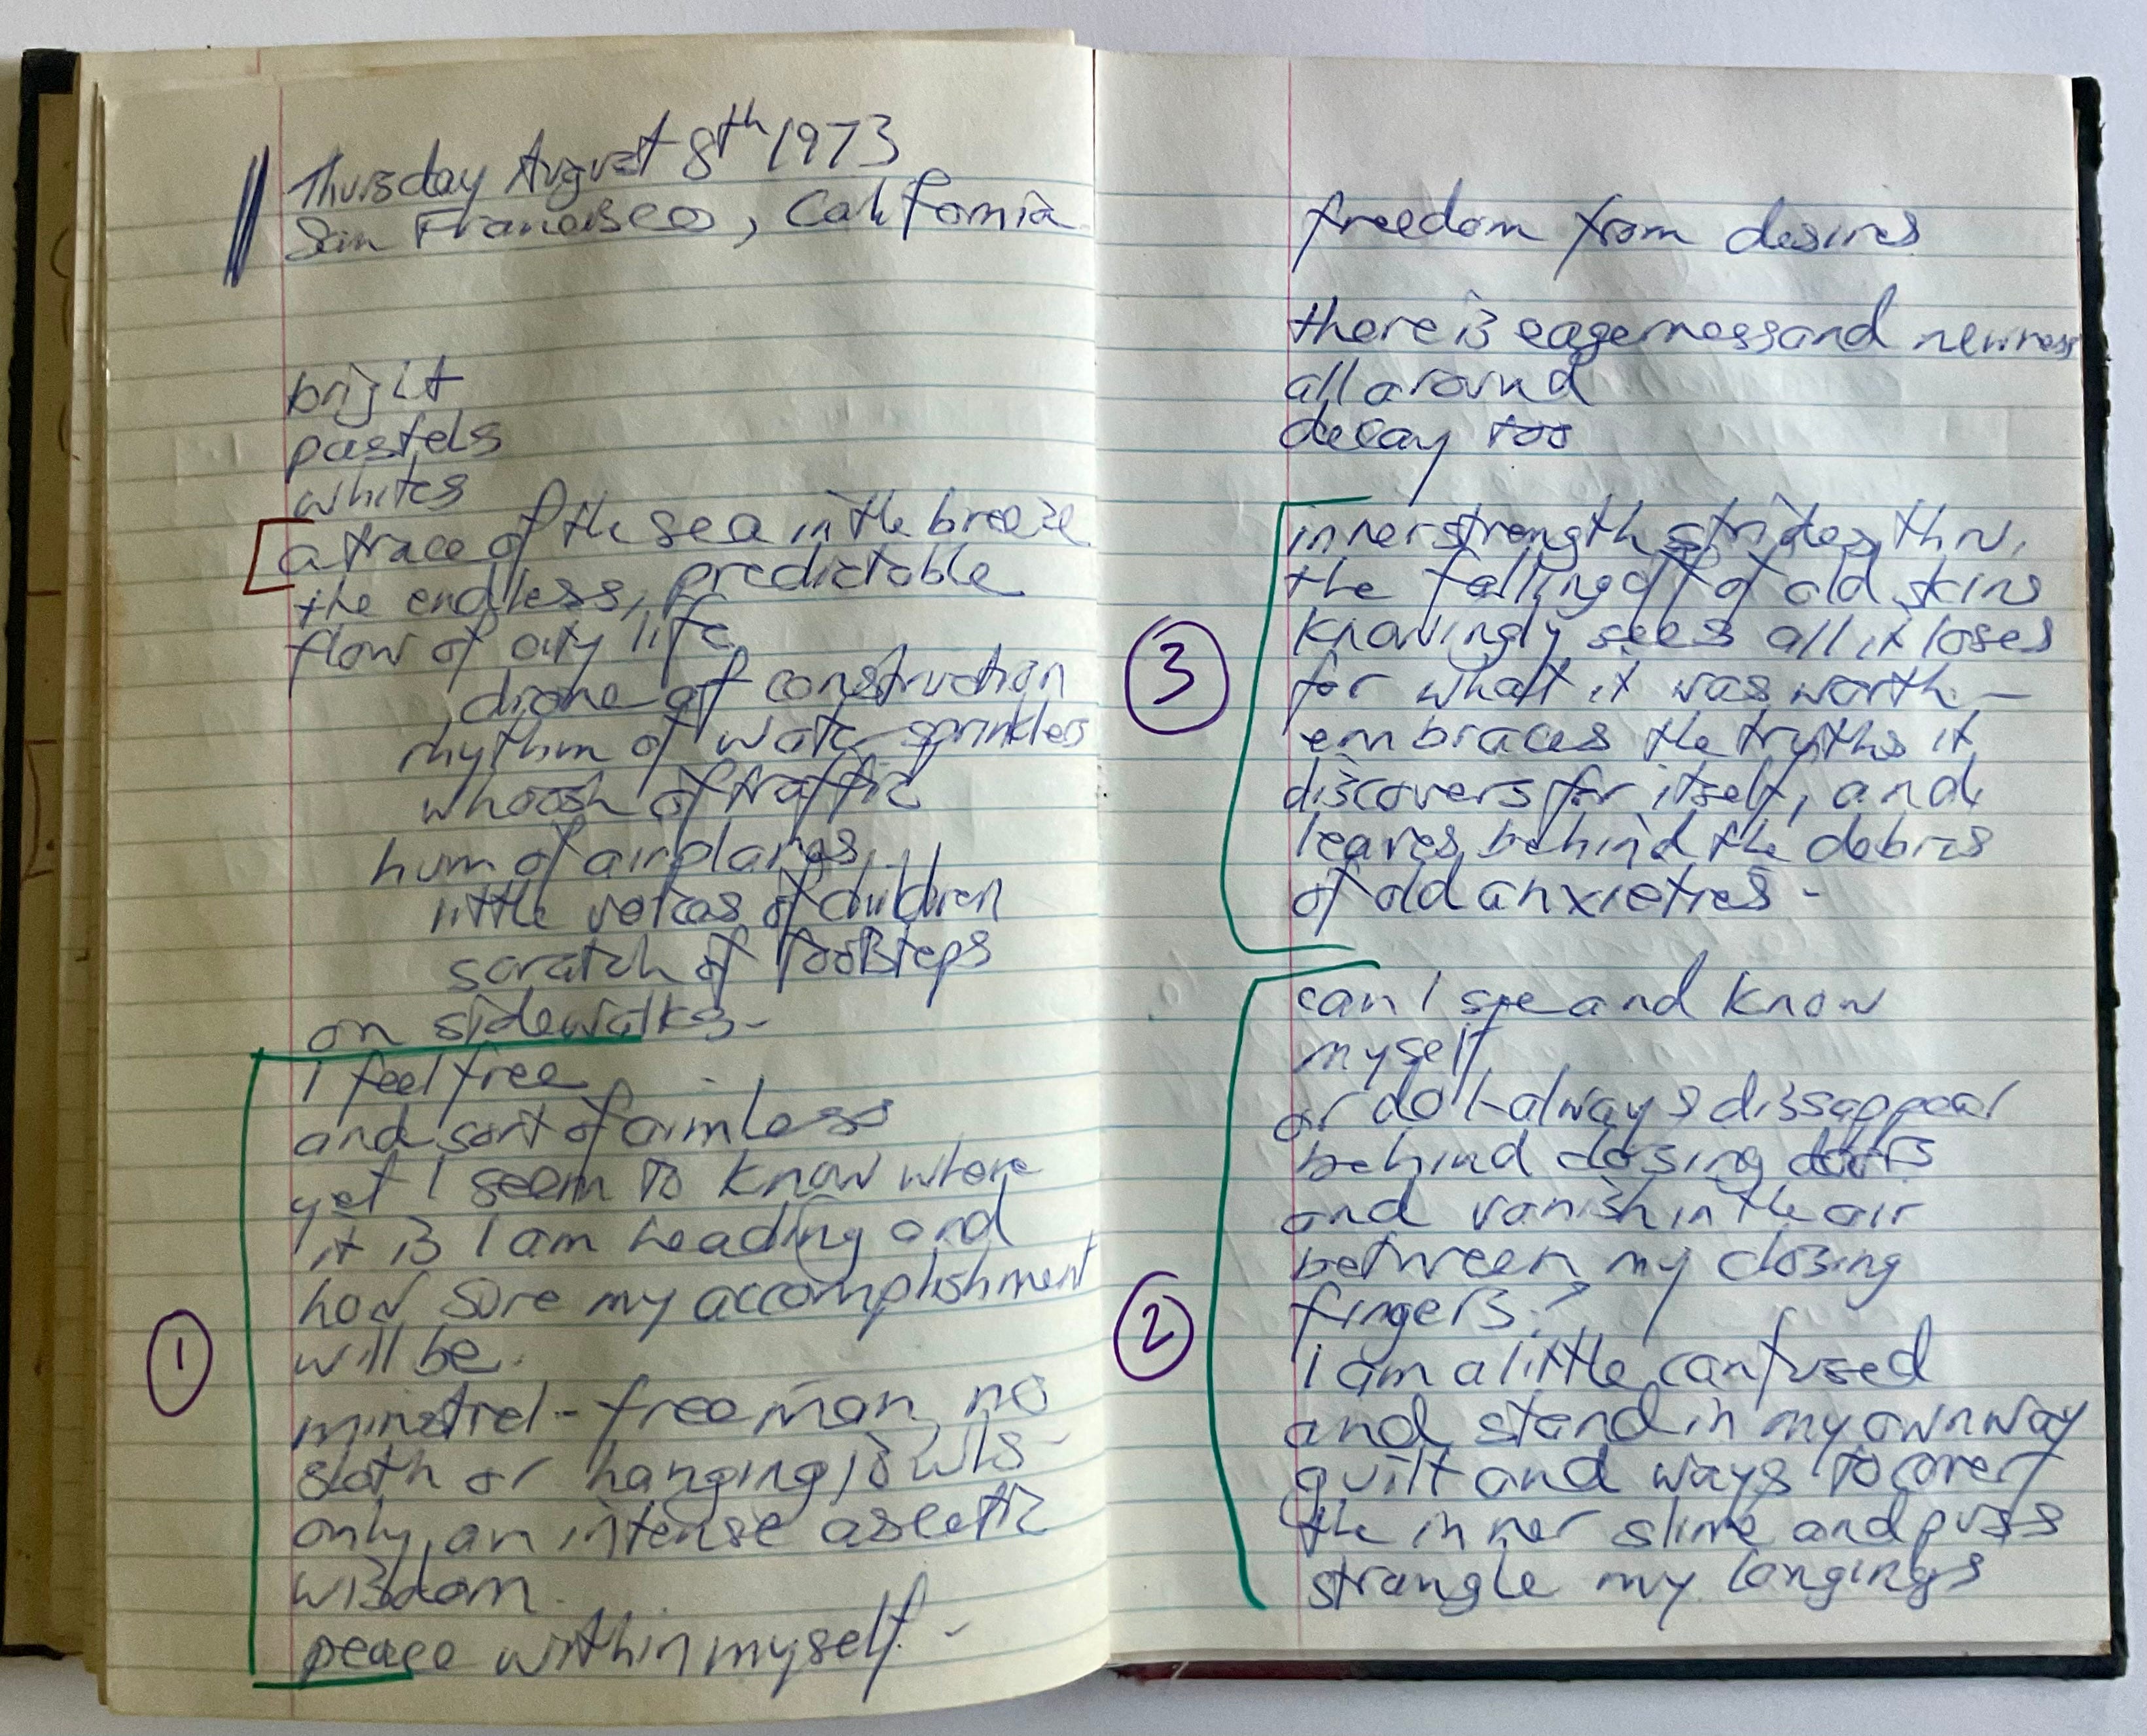 Thursday August 8th 1973
San Francisco, California
bright
pastels
whites
a trace of the sea in the breeze
the endless, predictable
flow of city life
drone of construction
rhythm of water sprinklers
whoosh of traffic
hum of airplanes
little voices of children
scratch of footsteps
on sidewalks-
I feel free
and sort of aimless
yet I seem to know where
it is I am heading and
how sure my accomplishment
will be.
minstrel - free man, no
sloth or hanging jowls -
only an intense ascetic
wisdom.
peace within myself. -
1
freedom from desires
there is eagerness and newness
all around
decay too
inner strength strides thru,
the falling off of old skins
knowingly sees all it loses
for what it was worth -
embraces the truths it
discovers for itself, and
leaves behind the debris
of old anxieties -
3
can I see and know
myself
or do I always dissappear
behind closing doors
and vanish in the air
between my closing
fingers?
I am a little confused
and stand in my own way
guilt and ways to cover
the inner slime and puss
strangle my longings
2